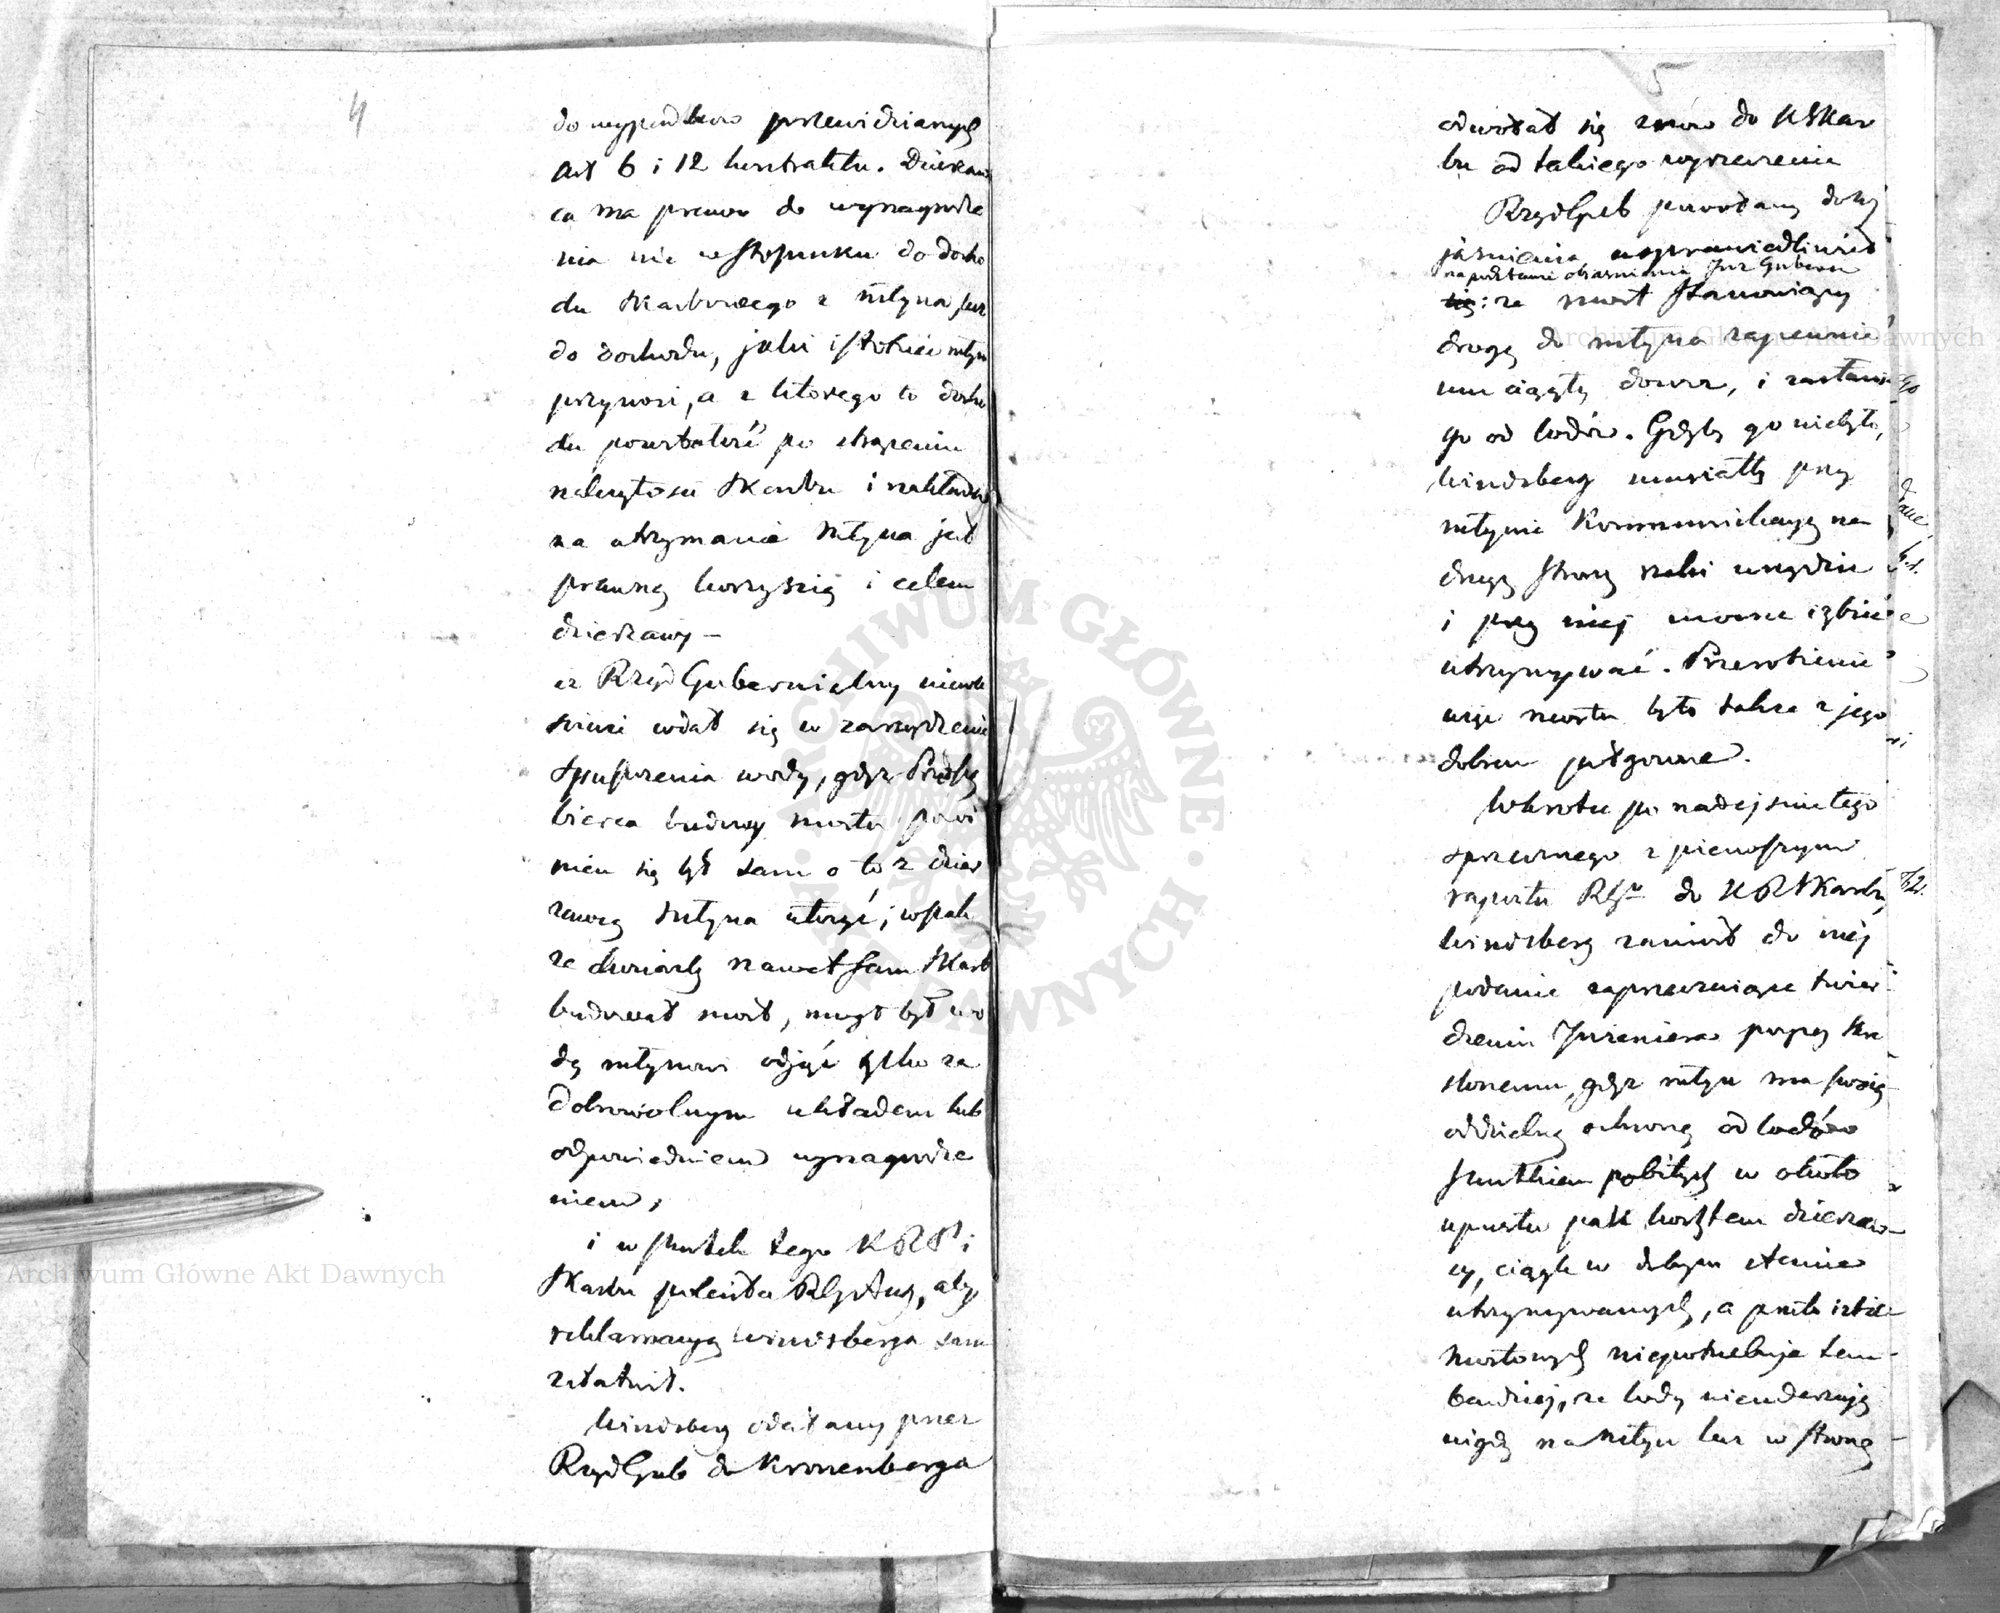 4
do wypadków przewidzianych
art 6 i 12 kontraktu. Dzierżaw
ca ma prawo do wynagrodze
nia nie w stosunku do docho
du skarbowego z młyna lecz
do dochodu, jaki istotnie młyn
przynosi, a z którego to docho
du pozostałość po strąceniu
należytości Skarbu i nakładów
na utrzymanie młyna jest
prawną korzyścią i celem
dzierżawy —
iż Rząd Gubernialny niewła
ściwie wdał się w zarządzenie
spuszczenia wody, gdyż Przedsię
bierca budowy mostu powi
nien się był sam o to z dzier
żawcą młyna ułożyć; wszak
że chociażby nawet sam Skarb
budował most, mógł był wo
dę młynowi odjąć tylko za
dobrowolnym układem lub
odpowiedniem wynagrodze
niem;
i w skutek tego KRP i
Skarbu poleciła RGAug, aby
reklamacyę Windsberga sam
załatwił.
Windsberg odesłany przez
Rząd Gub do Kronenberga
5
odwołał się znów do KSkar
bu od takiego wyrzeczenia
Rząd Gub powołany do wy
jaśnienia, usprawiedliwiał
na podstawie objaśnienia Inż Gubern
się: że most stanowiący
drogę do młyna zapewnia
mu ciągły dowóz, i zasłania
go od lodów. Gdyby go niebyło,
Windsberg musiałby przy
młynie kommunikacyę na
drugą stronę rzeki urządzić
i przy niej mocne izbice
utrzymywać. Przerobienie
więc mostu było także z jego
dobrem połączone.
Wkrótce po nadejściu tego
sprzecznego z pierwszym
raportu RG do KRSkarbu
Windsberg zaniósł do niej
podanie zaprzeczające twier
dzeniu Inżeniera
gdyż młyn ma swoją
oddzielną ochronę od lodów
w około
upustu kosztem dzierżaw
cy, ciągle w dobrym stanie
utrzymywanych, a przeto izbic
mostowych niepotrzebuje tem
bardziej, że lody nieuderzają
nigdy na młyn lecz w stronę